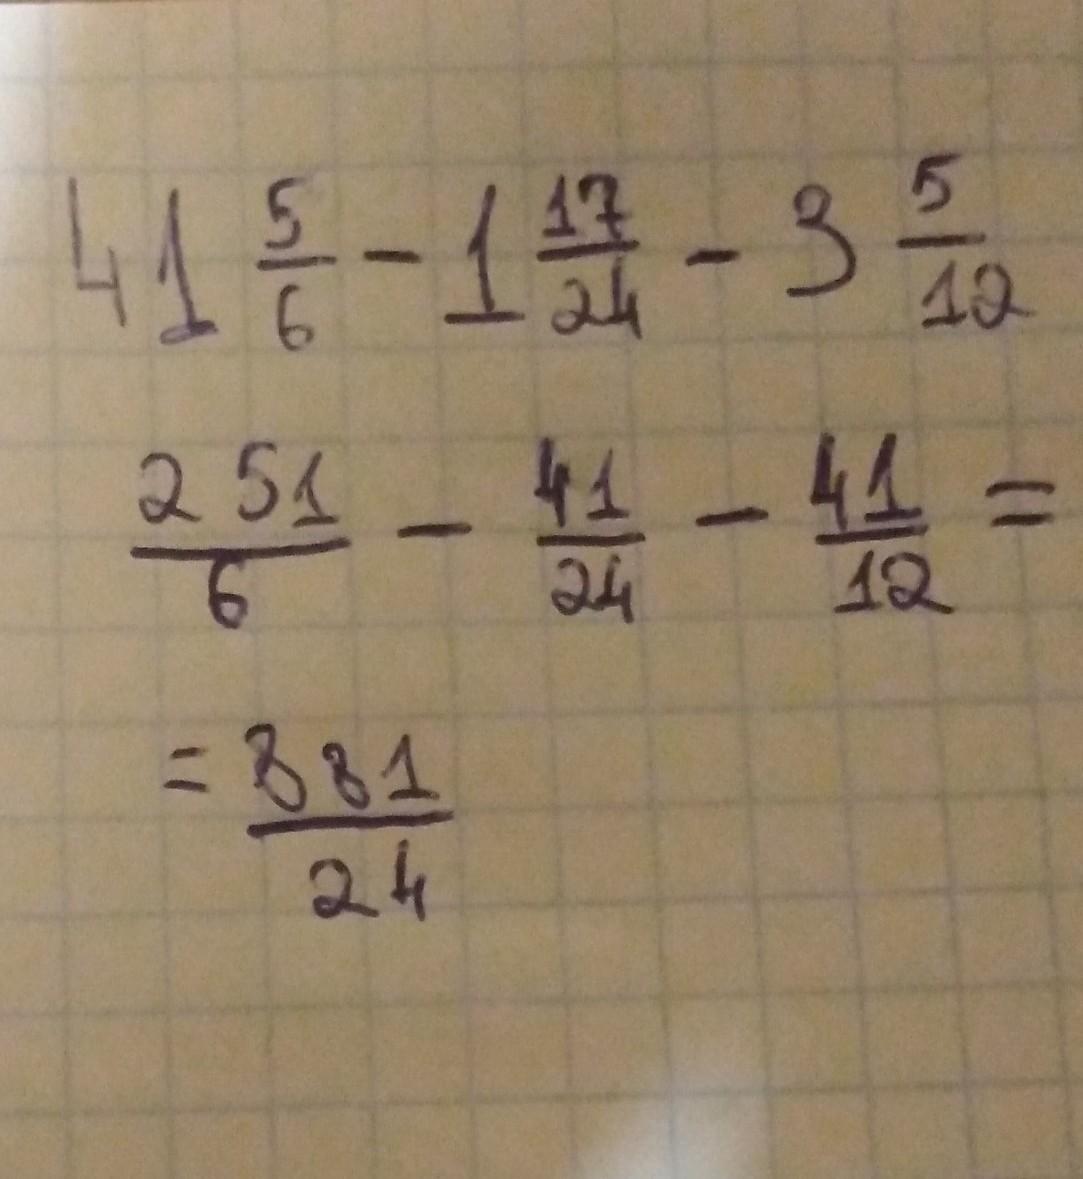 41 5/6 - 1 17/24 - 3 5/12
251/6 - 41/24 - 41/12 =
= 881/24